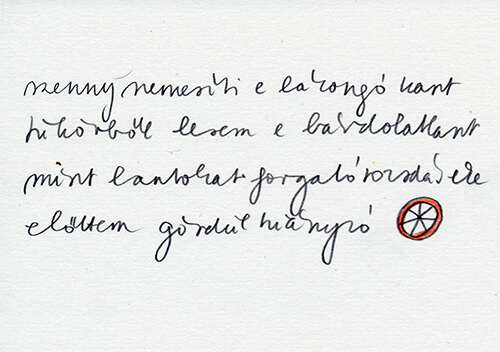 szenny nemesíti e lázongó kant
tükörből lesem e bárdolatlant
mint lantokat forgató rozsdás eke
előttem gördül hiányzó